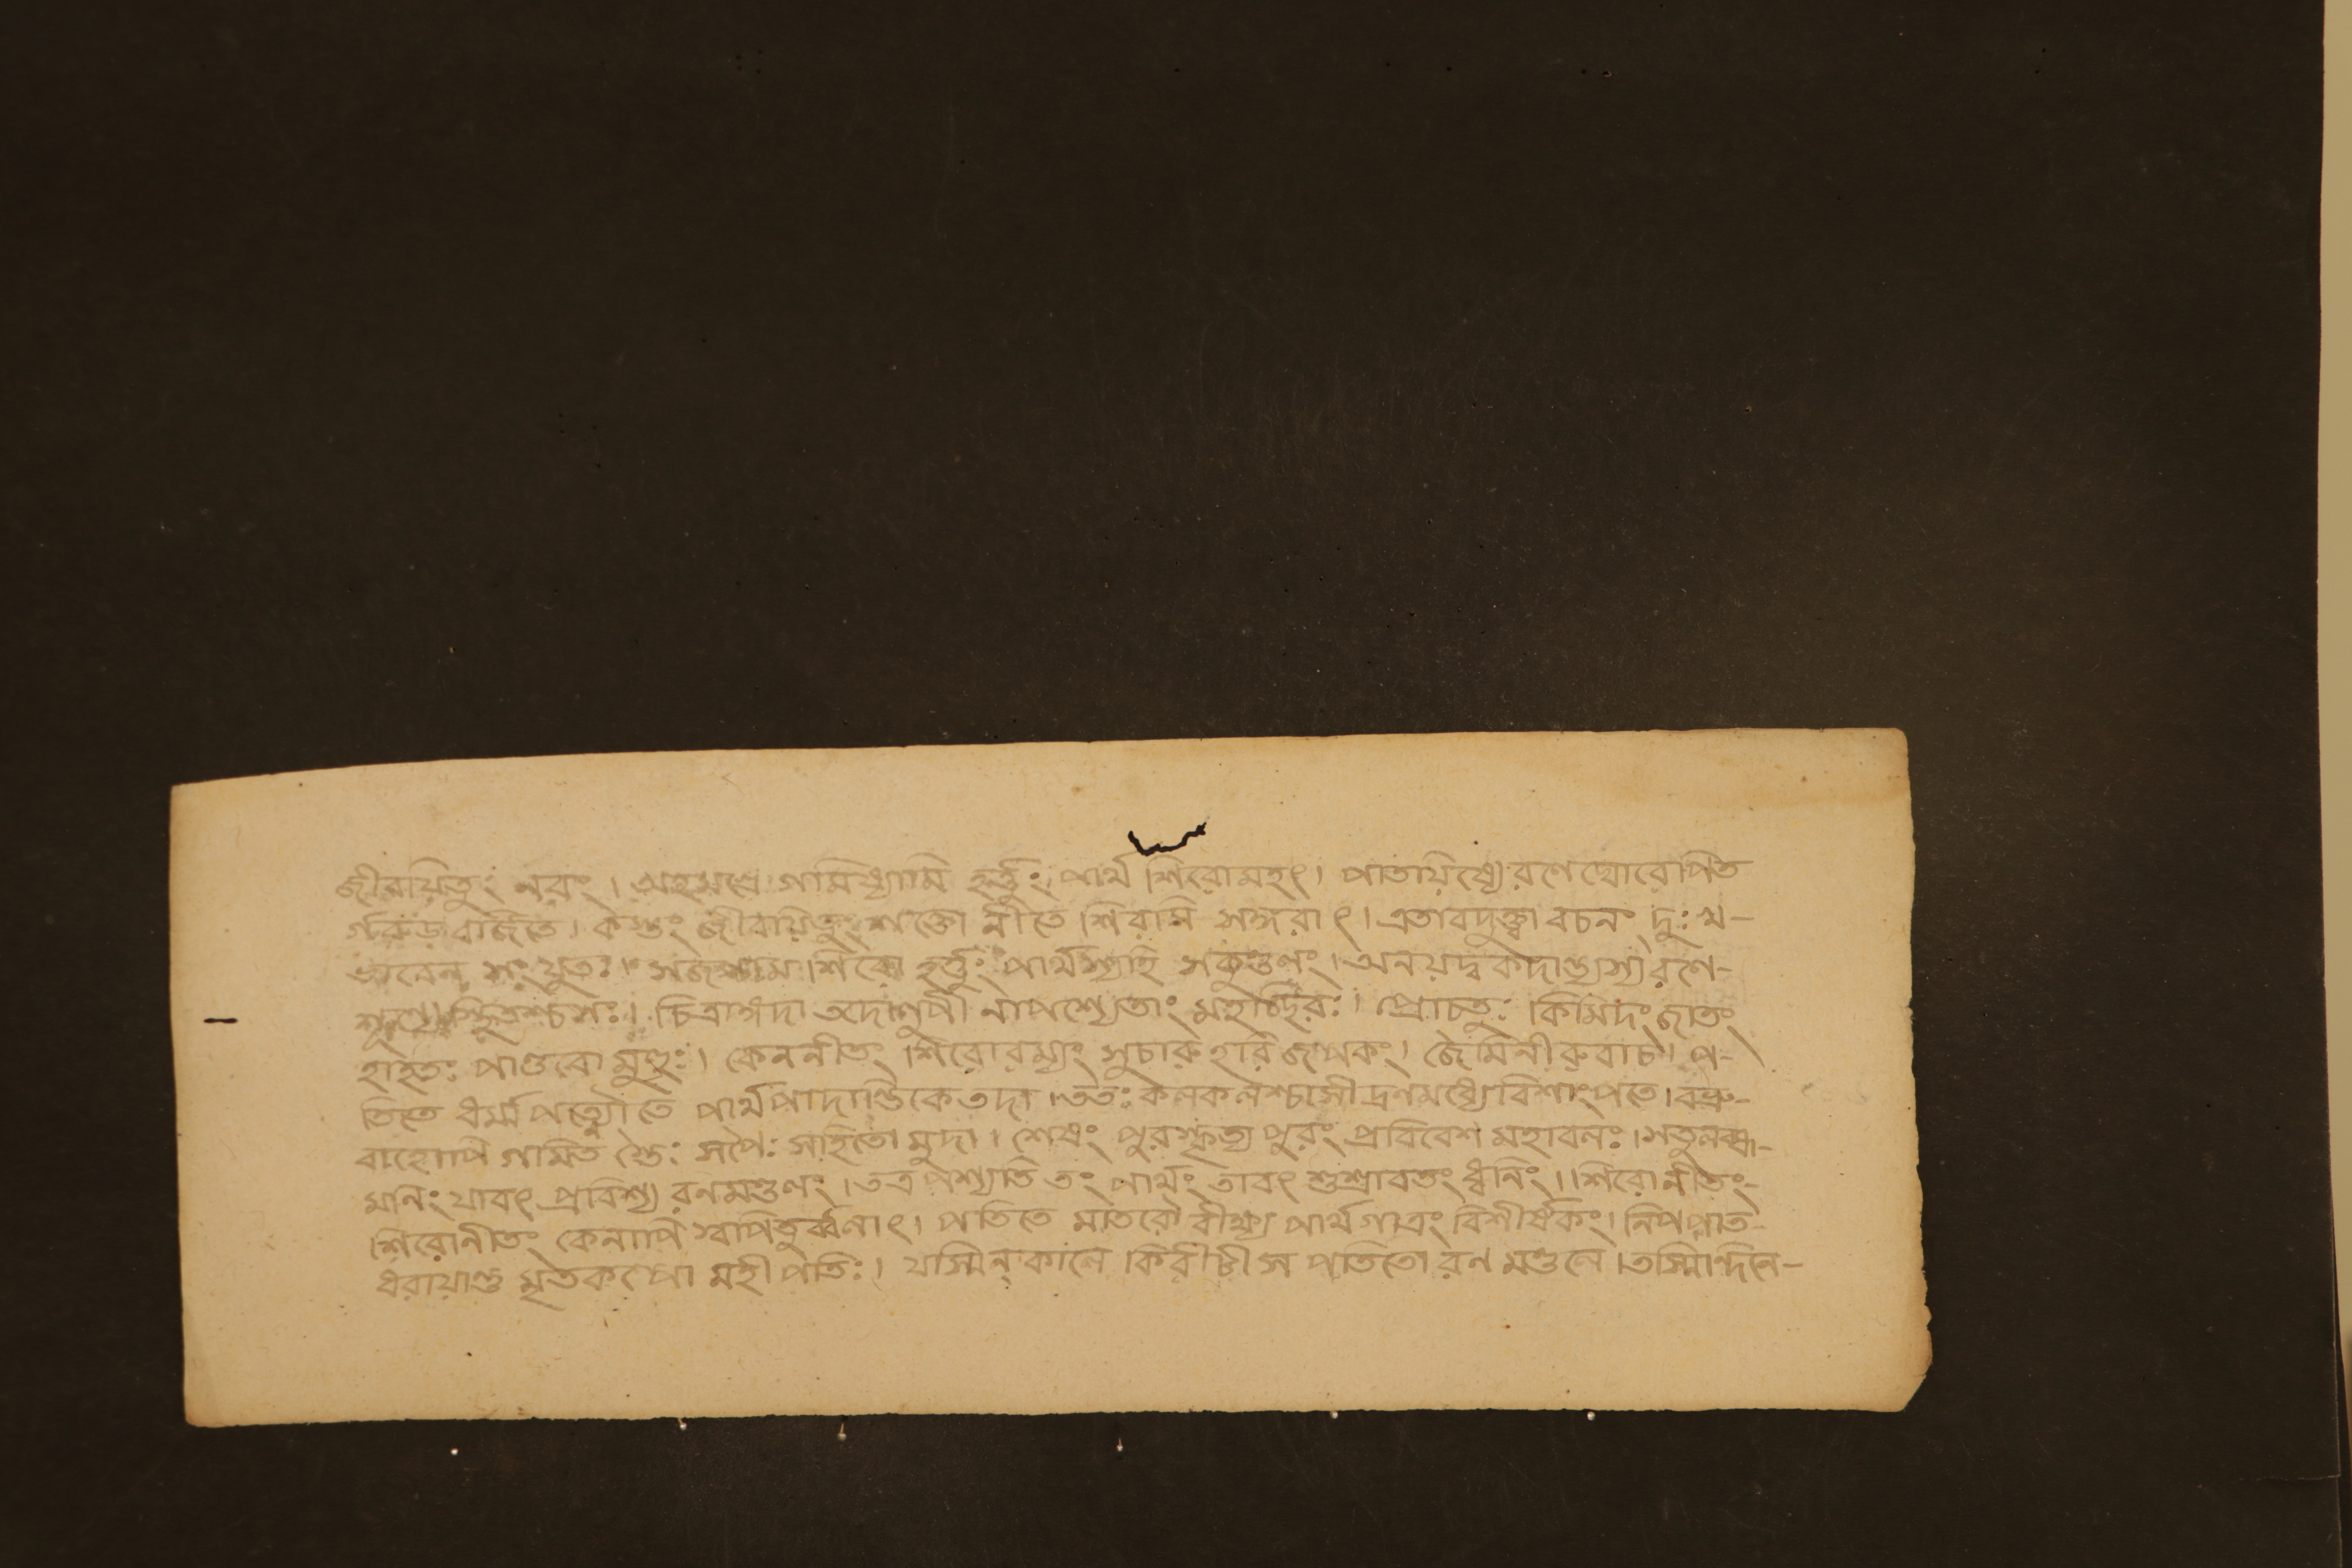 জীবয়িতুং নরং। অহমগ্রে গমিষ্যামি হর্ত্তুং পার্থ শিরোমহৎ। পাতয়িষ্যে রণেঘোরেপিত
র্গরুড় বর্জিতে। কস্তং জীবয়িতুং শক্তো নীতে শিরসি সঙ্গরাৎ। এতাবদুক্ত্বা বচনং দুঃখ-
ভাবেন সংযুতঃ। সজগাম শিরো হর্ত্তুং পার্থস্যহি সকুণ্ডলং। অনয়দ্বকদাল্ভ্যস্যরণে-
শূণ্যে স্থিতশ্চসঃ। চিত্রাঙ্গদা তদোলুপী নাপশ্যেতাং মহচ্ছিরঃ। প্রোচতুঃ কিমিদং জাতং
হাহতঃ পাণ্ডবো মুহুঃ। কেননীতং শিরোরম্যং সুচারু হরি জপকং। জৈমিনীরুবাচ। প-
তিতে ধর্ম্মপত্ন্যৌতে পার্থপাদান্তিকেতদা। ততঃ কলকলশ্চাসীদ্রণমধ্যেবিশাংপতে। বভ্রু-
বাহোপি গমিত স্তৈঃ সর্পৈঃ সহিতো মুদা। শেষং পুরস্কৃত্য পুরং প্রবিবেশ মহাবলঃ। সতুলব্ধা-
মনিং যাবৎ প্রবিশ্য রণমণ্ডলং। তত্র পশ্যতি তং পার্থং তাবৎ শুশ্রাবতং ধ্বনিং।। শিরোনীতং-
শিরোনীতং কেনাপি স্বাপিতুর্ব্বলাৎ। পতিতে মাতরৌ বীক্ষ্য পার্থগাত্রং বিশীর্ষকং। নিপপাত
ধরায়ান্তু মৃতকল্পো মহীপতিঃ। যস্মিন্ কালে কিরীটী স পতিতো রণ মণ্ডলে। তস্মিন্দিনে-